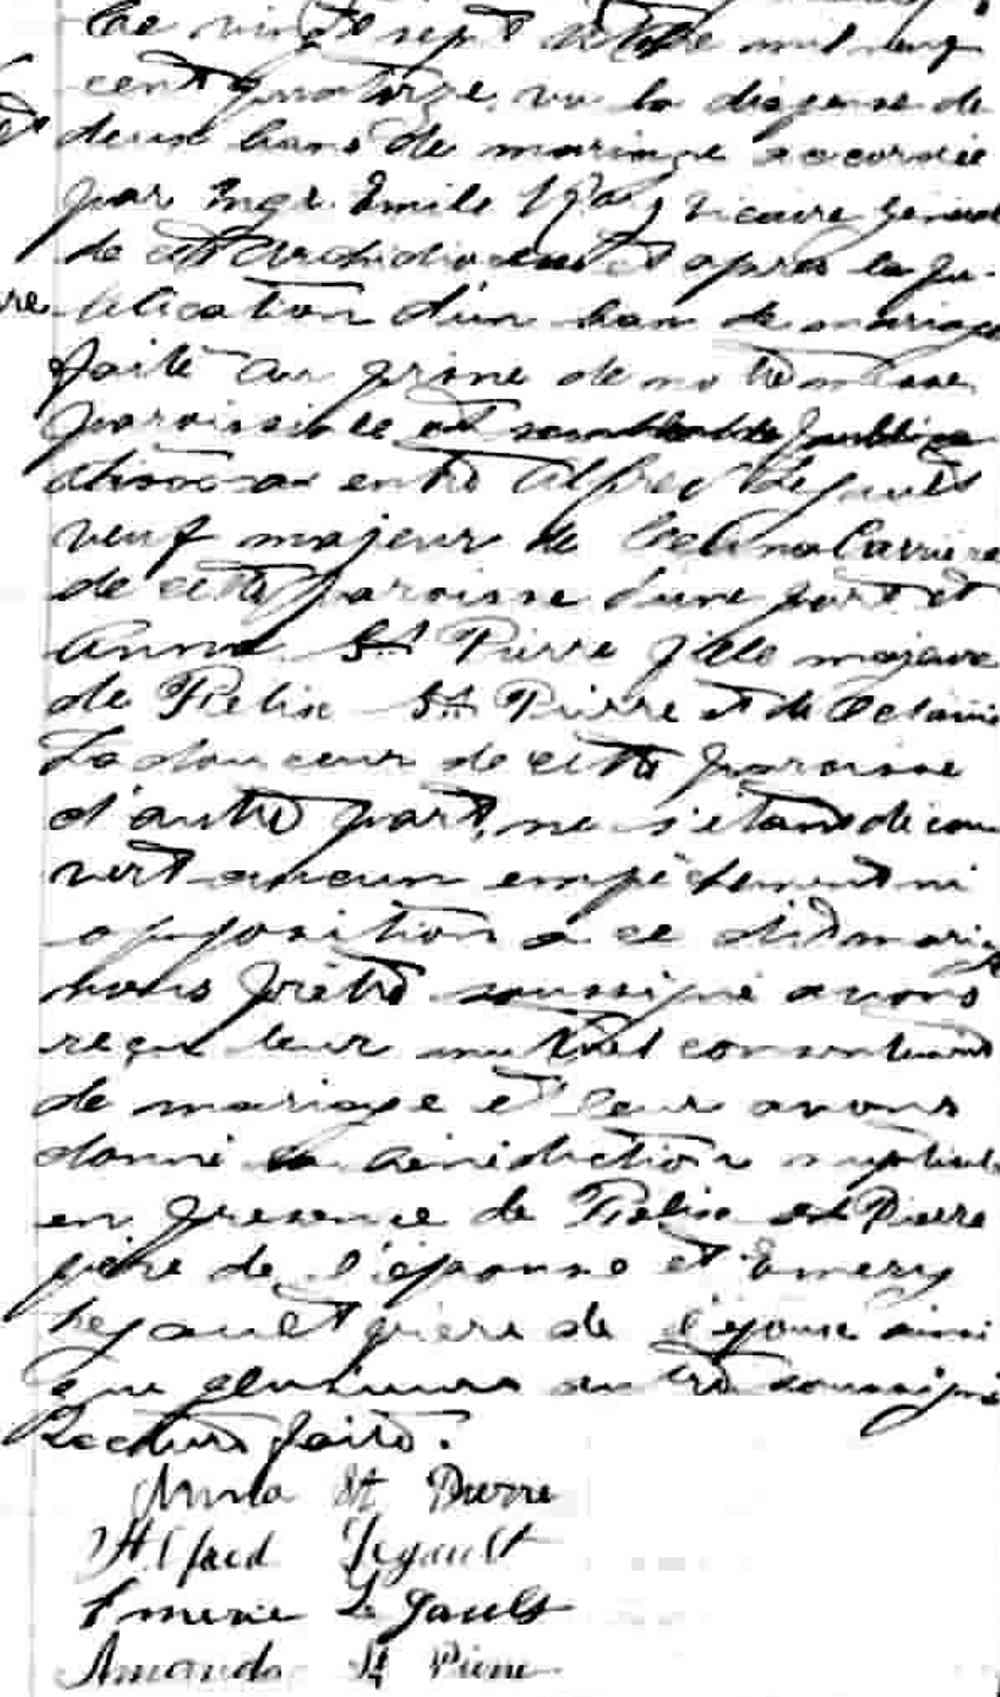 Le vingt sept octobre mil neuf
cent quatorze, vu la dispense de
deux bans de mariage accordée
par Mgr. Emile Roy, vicaire général
de cet Archidiocèse et après la pu-
re
blication d'un ban de mariage
faite au prône de notre messe
paroissiale et semblable publica
entre Alfred Legault
veuf majeur de Celina Carrière
de cette paroisse d'une part et
Anna St Pierre fille majeure
de Felix St Pierre et de Octavie
Ladouceur de cette paroisse
d'autre part, ne s'étant decou
vert aucun empêchement ni
opposition a ce dit mariage
nous prêtre soussigné avons
reçu leur mutuel consentement
de mariage et leur avons
donné la bénédiction nuptiale
en presence de Felix St Pierre
père de l'épouse et Emery
Legault frère de l'époux ainsi
que plusieurs autres soussignés
Lecture faite.
Anna St Pierre
Alfred Legault
Emerie Le Gault
Amanda St Pierre